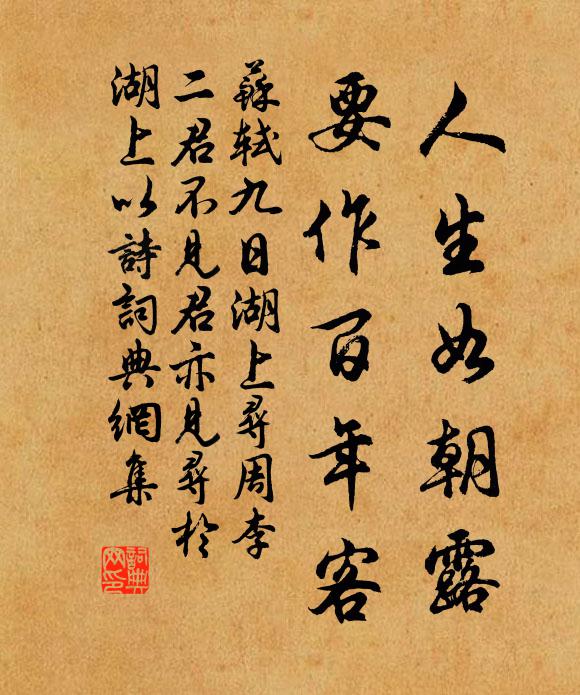 人生如朝露
要作百年客
蘇軾九日湖上尋周李
二君不見君亦見尋於
湖上以詩詞典網集
詞典網印